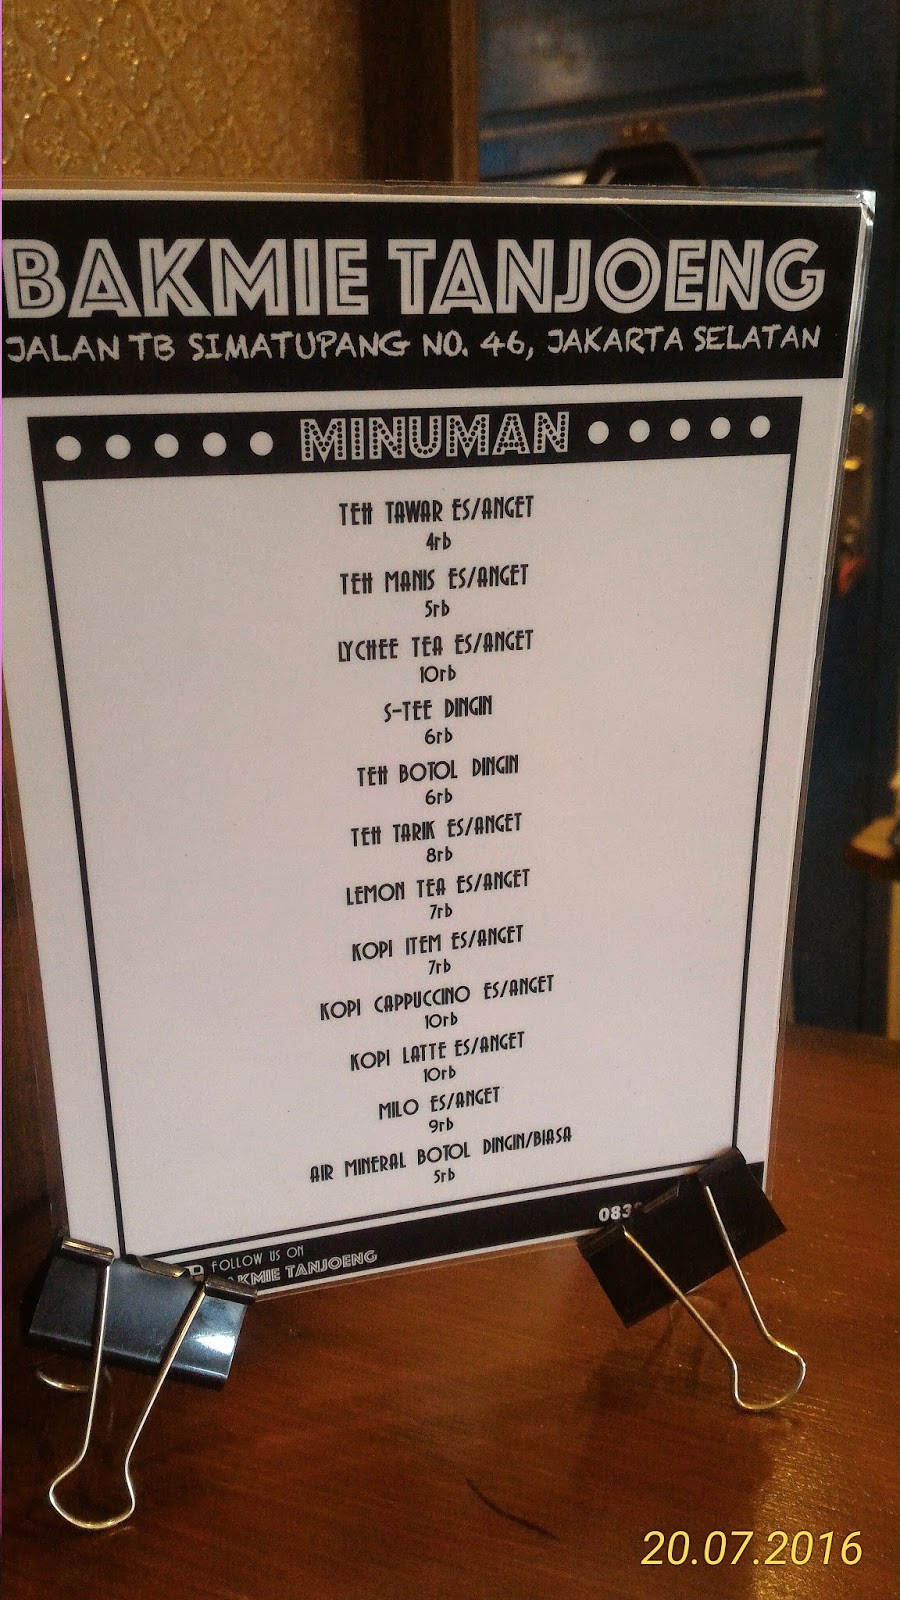 BAKMIE TANJOENG
JALAN TB SIMATUPANG NO. 46, JAKARTA SELATAN
MINUMAN
TEH TAWAR ES/ANGET
4rb
TEH MANIS ES/ANGET
5rb
LYCHEE TEA ES/ANGET
10rb
S-TEE DINGIN
6rb
TEH BOTOL DINGIN
6rb
TEH TARIK ES/ANGET
8rb
LEMON TEA ES/ANGET
7rb
KOPI ITEM ES/ANGET
7rb
KOPI CAPPUCCINO ES/ANGET
10rb
KOPI LATTE ES/ANGET
10rb
MILO ES/ANGET
9rb
AIR MINERAL BOTOL DINGIN/BIASA
5rb
FOLLOW US ON
BAKMIE TANJOENG
20.07.2016